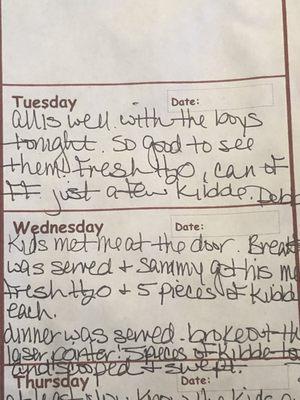 Tuesday Date:
all is well with the boys
tonight. So good to see
them. Fresh H2O, can of
FF just a few kibble. Deb
Wednesday Date:
Kids met me at the door. Break
was served + Sammy got his m
fresh H2O + 5 pieces of kibbl
each.
dinner was served. broke out th
laser pointer. 5 pieces of kibble
and scooped + swept.
Thursday Date:
know the kids a